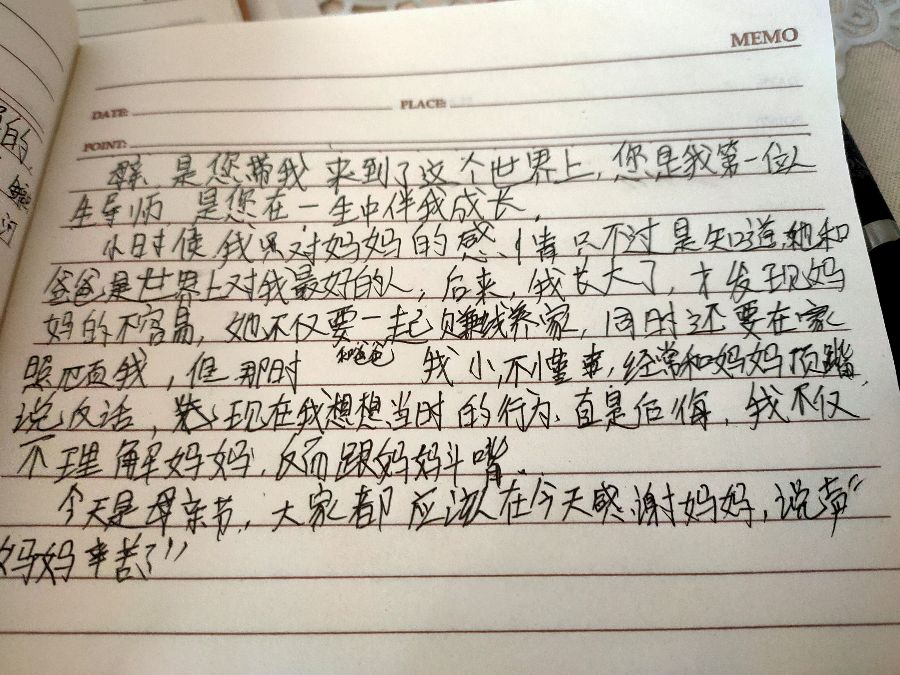 MEMO
DATE: PLACE:
POINT:
母亲 是您带我来到了这个世界上，您是我第一位人
生导师 是您在一生中伴我成长，
小时候我只对妈妈的感情只不过是知道她和
爸爸是世界上对我最好的人，后来，我长大了，才发现妈
妈的不容易，她不仅要一起赚钱养家，同时还要在家
和爸爸
照顾我，但那时 我小，不懂事，经常和妈妈顶嘴
说反话，现在我想想当时的行为真是后悔，我不仅
不理解妈妈，反而跟妈妈斗嘴，
今天是母亲节，大家都应该在今天感谢妈妈，说声“
妈妈辛苦了”
的